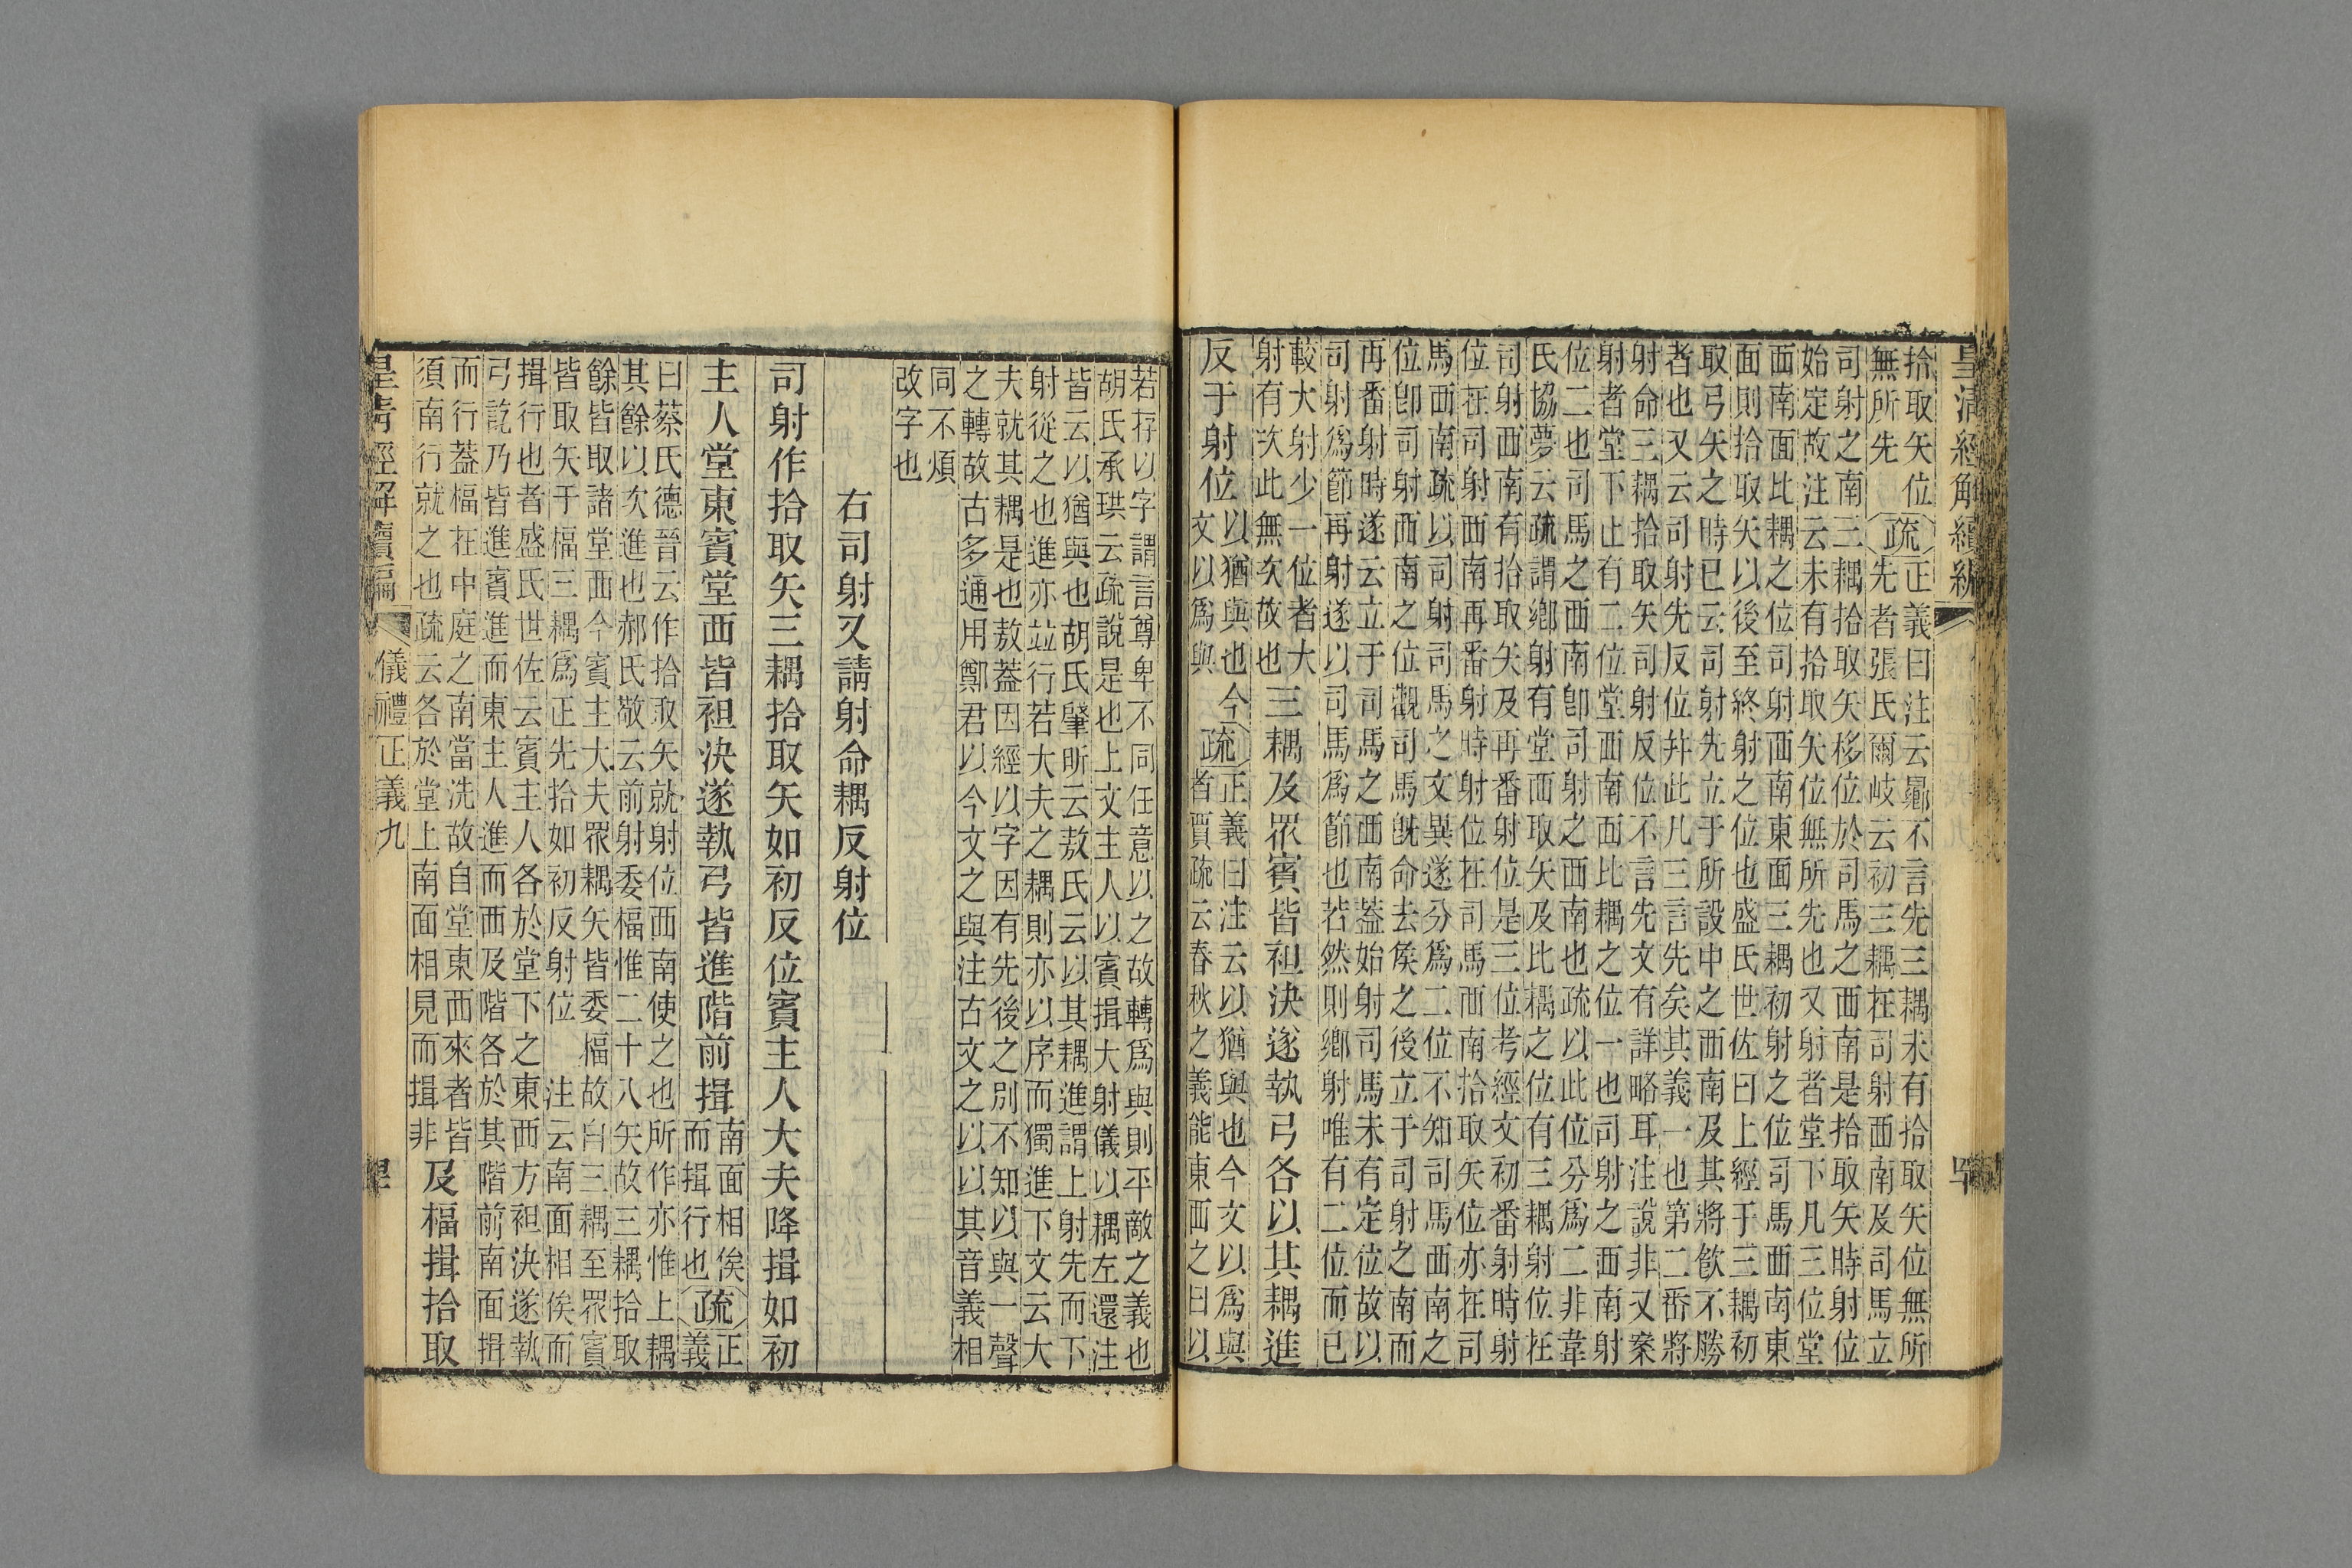 皇清經解續編
拾取矢位
無所先
疏
正義曰注云曏不言先三耦未有拾取矢位無所
先者張氏爾岐云初三耦在司射西南及司馬立
司射之南三耦拾取矢移位於司馬之西南是拾取矢時射位
始定故注云未有拾取矢位無所先也又射者堂下凡三位堂
西南面比耦之位司射西南東面三耦初射之位司馬西南東
面則拾取矢以後至終射之位也盛氏世佐曰上經于三耦初
取弓矢之時已云司射先立于所設中之西南及其將飲不勝
者也又云司射先反位幷此凡三言先矣其義一也第二番將
射命三耦拾取矢司射反位不言先文有詳略耳注說非又案
射者堂下止有二位堂西南面比耦之位一也司射之西南射
位二也司馬之西南卽司射之西南也疏以此位分爲二非韋
氏協夢云疏謂鄉射有堂西取矢及比耦之位有三耦射位在
司射西南有拾取矢及再番射位是三位考經文初番射時射
位在司射西南再番射時射位在司馬西南拾取矢位亦在司
馬西南疏以司射司馬之文異遂分爲二位不知司馬西南之
位卽司射西南之位觀司馬旣命去矦之後立于司射之南而
再番射時遂云立于司馬之西南蓋始射司馬未有定位故以
司射爲節再射遂以司馬爲節也若然則鄉射唯有二位而已
較大射少一位者大
射有次此無次故也
三耦及眾賓皆袒決遂執弓各以其耦進
反于射位
以猶與也今
文以爲與
疏
正義曰注云以猶與也今文以爲與
者賈疏云春秋之義能東西之曰以
若存以字謂言尊卑不同任意以之故轉爲與則平敵之義也
胡氏承珙云疏說是也上文主人以賓揖大射儀以耦左還注
皆云以猶與也胡氏肇昕云敖氏云以其耦進謂上射先而下
射從之也進亦竝行若大夫之耦則亦以序而獨進下文云大
夫就其耦是也敖蓋因經以字因有先後之別不知以與一聲
之轉故古多通用鄭君以今文之與注古文之以以其音義相
同不煩
改字也
右司射又請射命耦反射位
司射作拾取矢三耦拾取矢如初反位賓主人大夫降揖如初
主人堂東賓堂西皆袒決遂執弓皆進階前揖
南面相俟
而揖行也
疏
正
義
曰蔡氏德晉云作拾取矢就射位西南使之也所作亦惟上耦
其餘以次進也郝氏敬云前射委楅惟二十八矢故三耦拾取
餘皆取諸堂西今賓主大夫眾耦矢皆委楅故自三耦至眾賓
皆取矢于楅三耦爲正先拾如初反射位　注云南面相俟而
揖行也者盛氏世佐云賓主人各於堂下之東西方袒決遂執
弓訖乃皆進賓進而東主人進而西及階各於其階前南面揖
而行蓋楅在中庭之南當洗故自堂東西來者皆
須南行就之也疏云各於堂上南面相見而揖非
及楅揖拾取
皇清經解續編
儀禮正義九